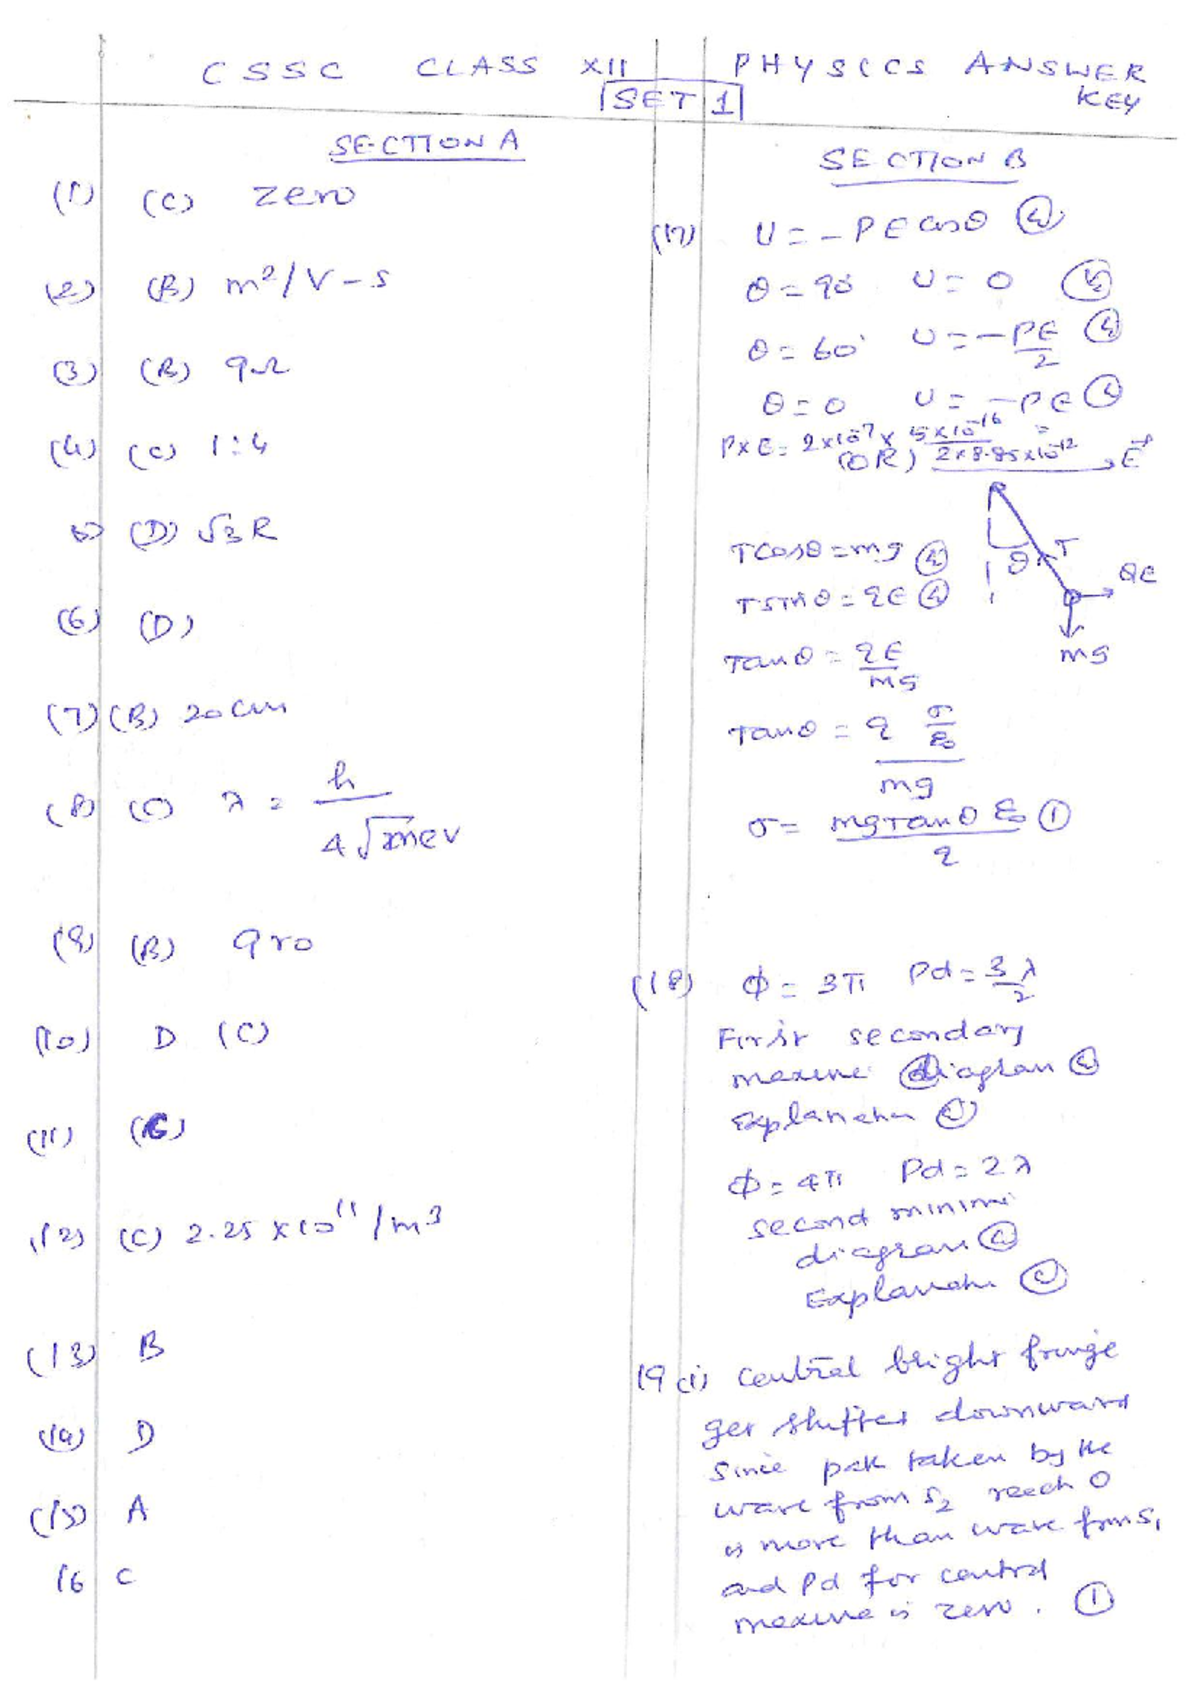 CSSC CLASS XII PHYSICS ANSWER KEY
SET 1
SECTION A
(1) (C) zero
(2) (B) m²/V-s
(3) (B) 9Ω
(4) (C) 1:4
(5) (D) √3R
(6) (D)
(7) (B) 20cm
(8) (C) λ = h / 4√meV
(9) (B) 9r₀
(10) D (C)
(11)
(12) (C) 2.25 × 10¹¹/m³
(13) B
(14) D
(15) A
16 C
SECTION B
(17) U = -PE cosθ (½)
θ = 90° U = 0 (½)
θ = 60° U = -PE/2 (½)
θ = 0 U = -PE (½)
P×E = 2×10⁻⁷ × 5×10⁻¹⁶ / 2×8.85×10⁻¹² =
(OR)
E
Tcosθ = mg (½)
θ T
QE
Tsinθ = qE (½)
mg
Tanθ = qE / mg
Tanθ = q σ/ε₀ / mg
σ = mgTanθ ε₀ / q (1)
(18) φ = 3π Pd = 3λ/2
First secondary
maxime diagram (½)
Explanation (½)
φ = 4π Pd = 2λ
second minima
diagram (½)
Explanation (½)
19 (i) Central bright fringe
get shifted downward
Since path taken by the
wave from S₂ reach O
is more than wave from S₁
and Pd for central
maxima is zero. (1)